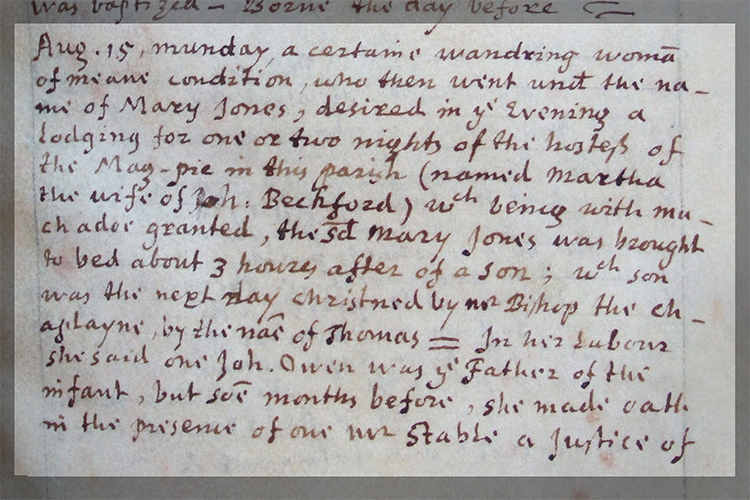 was baptized – Borne the day before =
Aug. 15, munday, a certaine wandring womā
of meane condition, who then went und̄ the na_
me of Mary Jones, desired in yᵉ Evening a
Lodging for one or two nights of the hosteſs of
the Mag-pie in this parish (named Martha
the wife of Joh: Beckford) wᶜʰ being with mu_
ch adoe granted, the sd̄ Mary Jones was brought
to bed about 3 hours after of a son; wᶜʰ son
was the next day christned by mʳ Bishop the ch_
aplayne, by the nāe of Thomas = In her Labour
she said one Joh. Owen was yᵉ Father of the
infant, but sōe months before, she made oath
in the presence of one mʳ Stable a Justice of